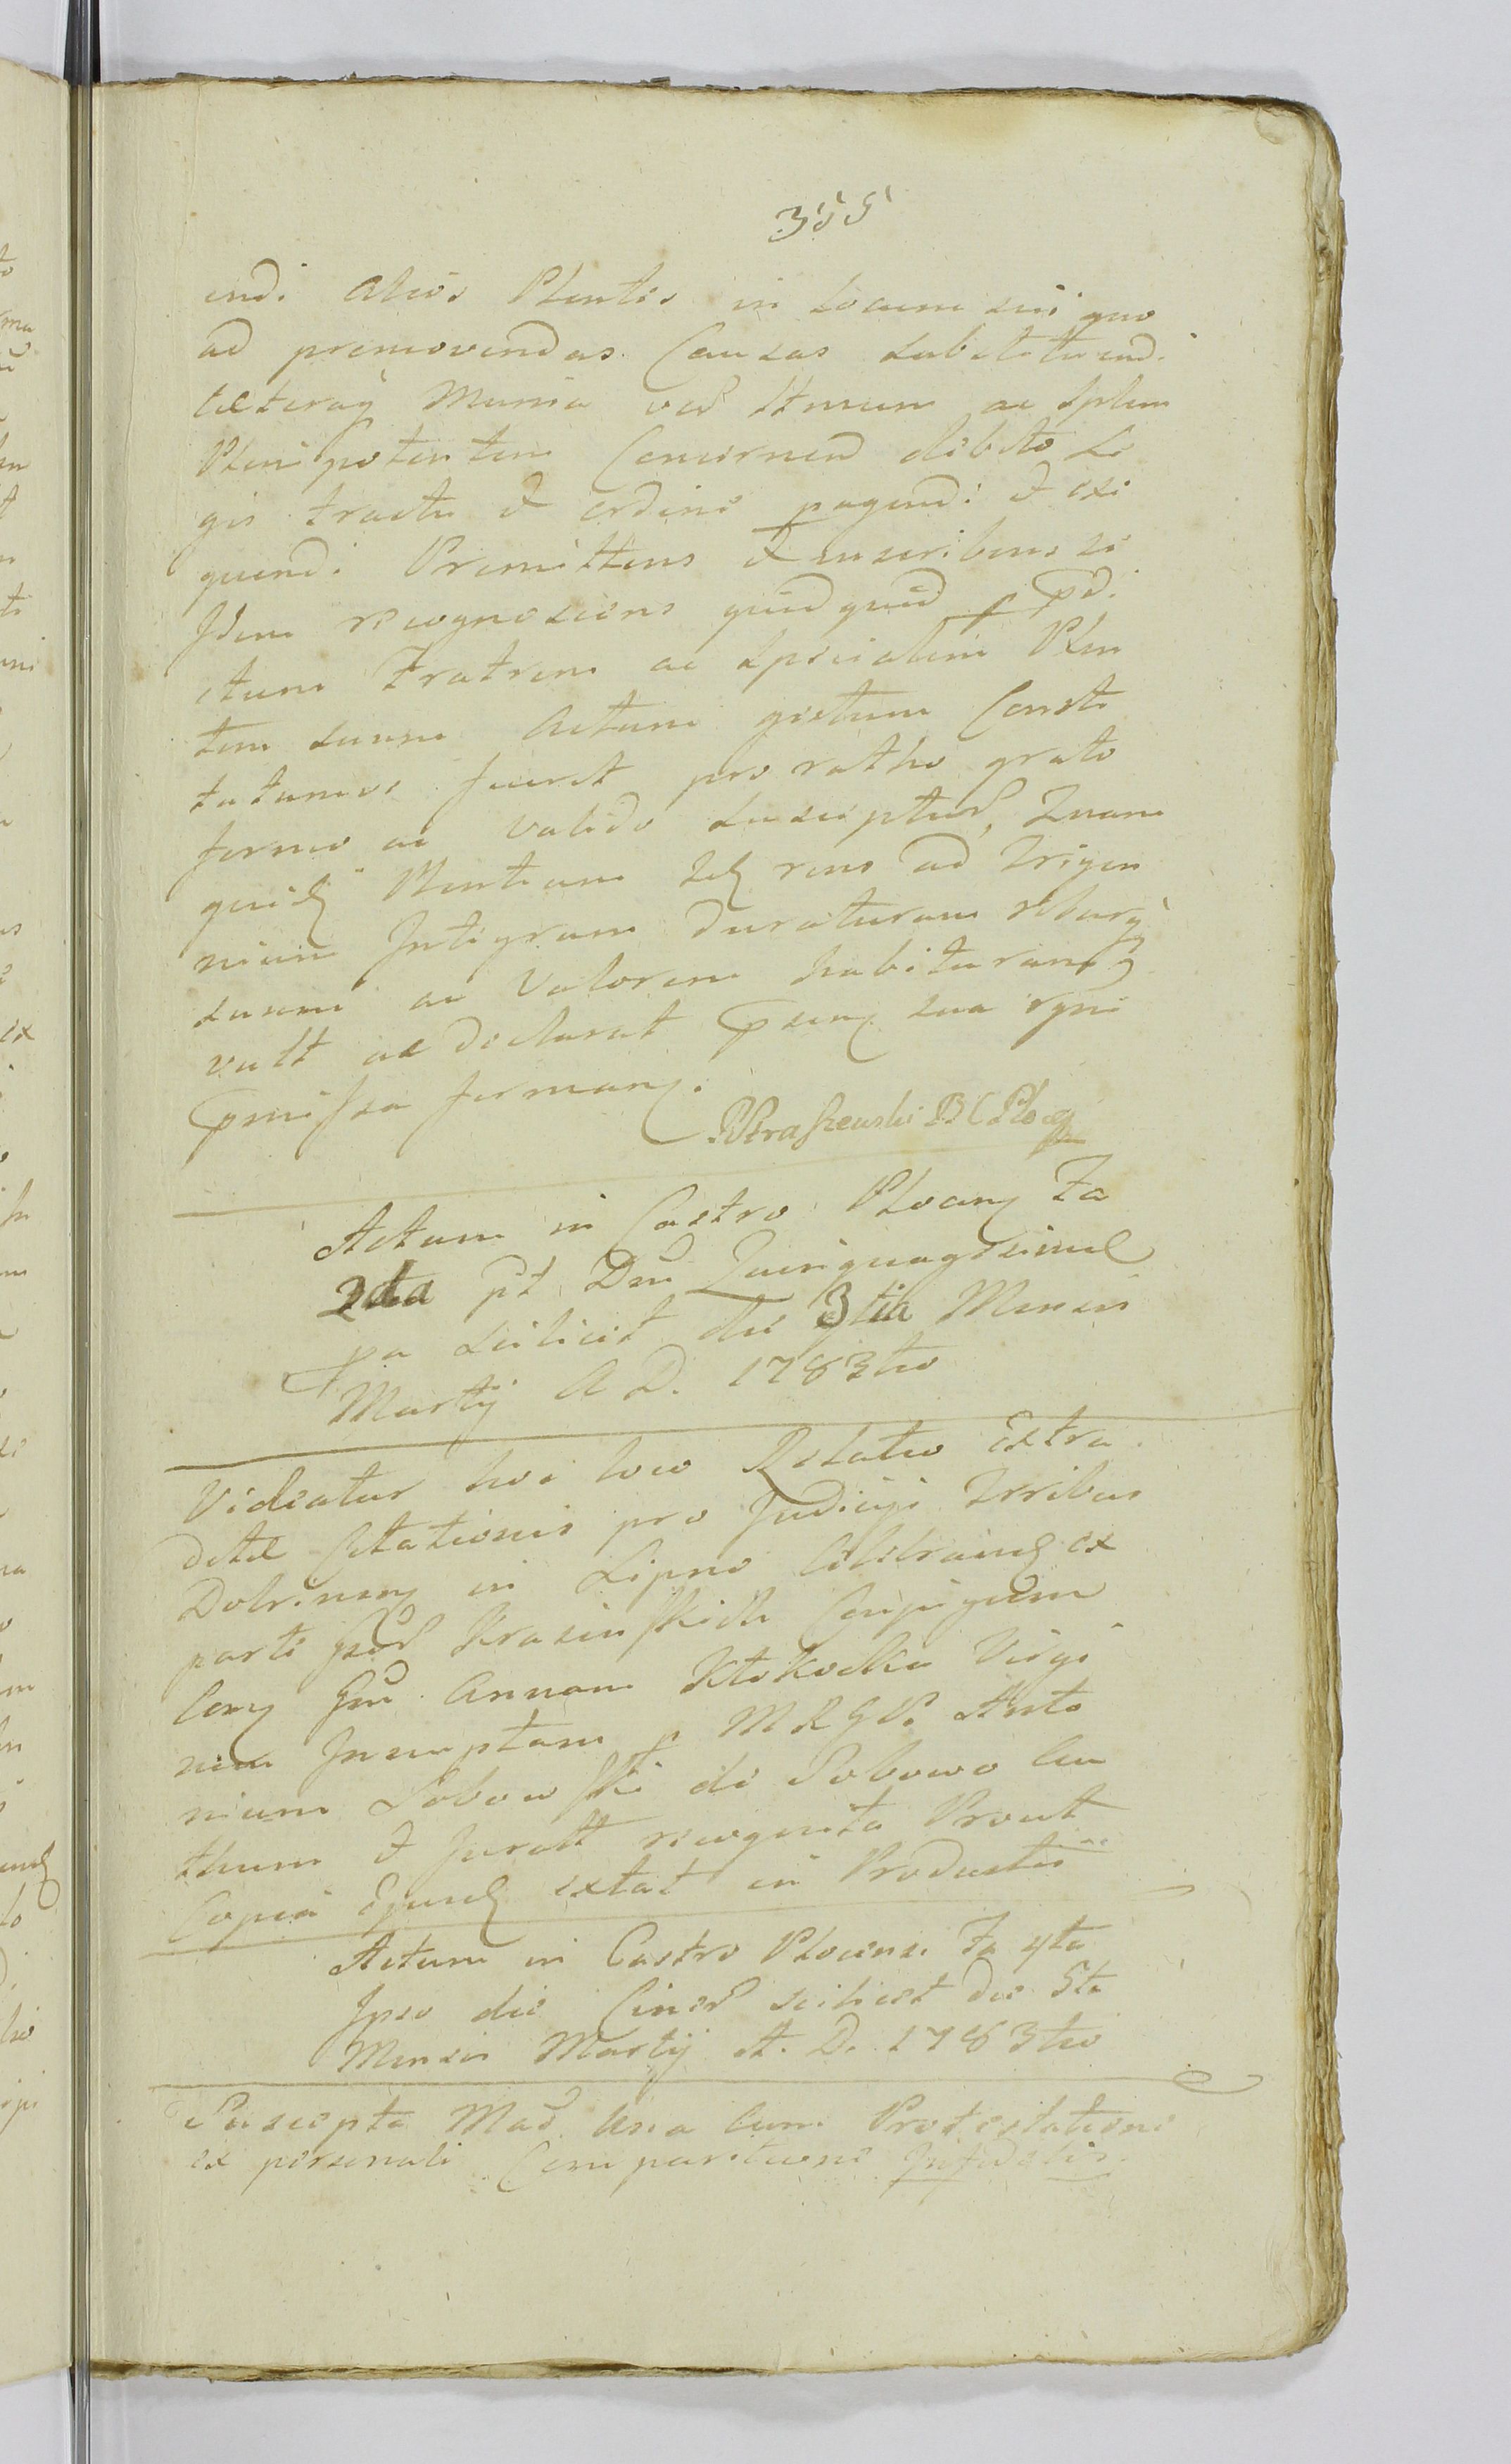 355
endi alios Plentes in Locum sui quo
ad promovendas Causas substituend.
caeteraq Munia ver Itmum ac Splem
Plenipotentem Concernend debito Le
gis tractu et ordine pagendi et exe
quendi Premittens et inscribens se
Idem recognoscens quidquid p pd.
ctum Fratrem ac Specialem Plen
tem suum Actum gestum Consti
tutumve fuerit pro ratho grato
firmo ac valido suscipiend, Quam
quid Plentiam ad Trigen
nium Integrum duraturam Roburq
suum ac Valorem habituram
vult ac declarat sua
pmissa firmans.
PKraszewski B C Ploc
Actum in Castro Plocen Fa
2da pt Dni Quinquagesimae
pa scilicet die 3tia Mensis
Martij A D. 1783tio
Videatur hoc loco Relatio Extra
ditae Citationis pro Judicijs Trribus
Dobrinen in Lipno celebrand ex
parte Gsor Krasinskich Conjugum
Con Gm Annam Kłokocka Virgi
nem Inscriptam p M R G Pe Anto
nium Sobowski de Sobowo Cu
thum et Juratt recognita Prout
Copia Ejusd extat in Productis
Actum in Castro Plocensi Fa 4ta
Ipso die Ciner scilicet die 5ta
Mensis Martij A. D. 1783tio
Suscepta Mad. una cum Protestatione
ex personali Comparitione Infidelis.